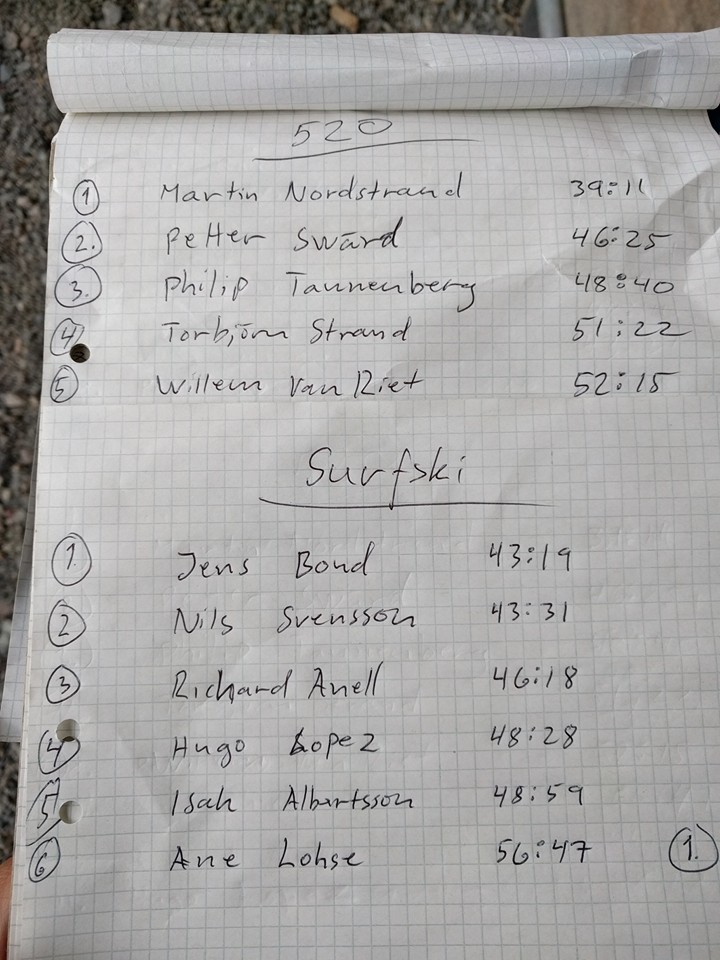 520
1 Martin Nordstrand 39:11
2. Petter Swärd 46:25
3. Philip Tannenberg 48:40
4 Torbjörn Strand 51:22
5 Willem Van Riet 52:15
Surfski
1. Jens Bond 43:19
2 Nils Svensson 43:31
3 Richard Anell 46:18
4 Hugo Lopez 48:28
5 Isak Albertsson 48:59
6 Ane Lohse 56:47 1.